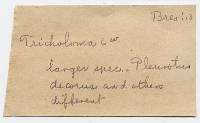 Tricholoma 6
larger spec. Pleurotus
decorus and others
different